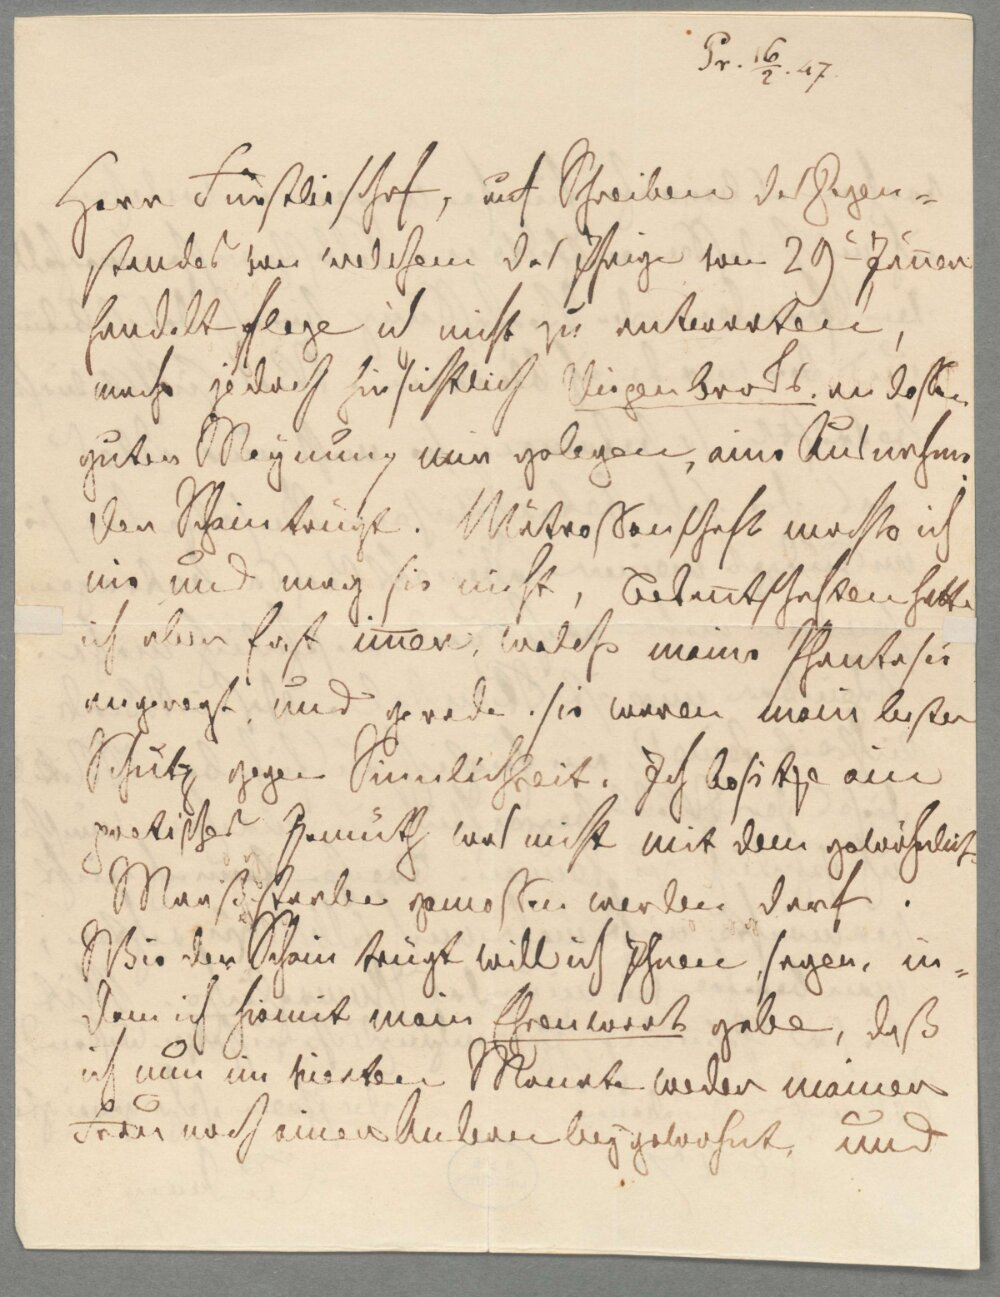 Pr. 16/2. 47.
Herr Fürstbischof, auf Schreiben des Gegen=
standes von welchem das Ihrige vom 29t Jäner
handelt pflege ich nicht zu antworten,
mache jedoch hinsichtlich an dessen
guter Meynung mir gelegen, eine Ausnahme
Der Schein trügt. Mätressenschaft machte ich
nie und mag sie nicht, Bekantschaften hatte
ich aber fast imer, welche meine Phantasie
angeregt, und gerade sie waren mein bester
Schutz gegen Sinnlichkeit. Ich besitze ein
poetisches Gemüth was nicht mit dem gewöhnlich
Maaßstabe gemessen werden darf.
Wie der Schein trügt will ich Ihnen sagen, in=
dem ich hiemit mein Ehrenwort gebe, daß
ich nun im vierten Monate weder meiner
Frau noch einer Anderen beygewohnt, und